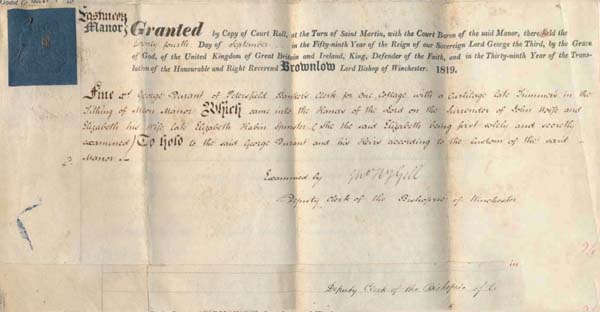 Eastmeon Manor
Granted by Copy of Court Roll, at the Turn of Saint Martin, with the Court Baron of the said Manor, there held the
twenty fourth Day of September in the Fifty-ninth Year of the Reign of our Sovereign Lord George the Third, by the Grace
of God, of the United Kingdom of Great Britain and Ireland, King, Defender of the Faith, and in the Thirty-ninth Year of the Trans-
lation of the Honourable and Right Reverend Brownlow Lord Bishop of Winchester. 1819.
Fine of George Durant of Petersfield Bankers Clerk for One Cottage with a Curtilage late Trimmers in the
Tithing of Meon Manor Which came into the Hands of the Lord on the Surrender of John and
Elizabeth his wife late Elizabeth Spinster (She the said Elizabeth being first solely and secretly
examined) To Hold to the said George Durant and his Heirs according to the Custom of the said
Manor
Examined by
Deputy Clerk of the Bishopric of Winchester
in
Deputy Clerk of the Bishopric of